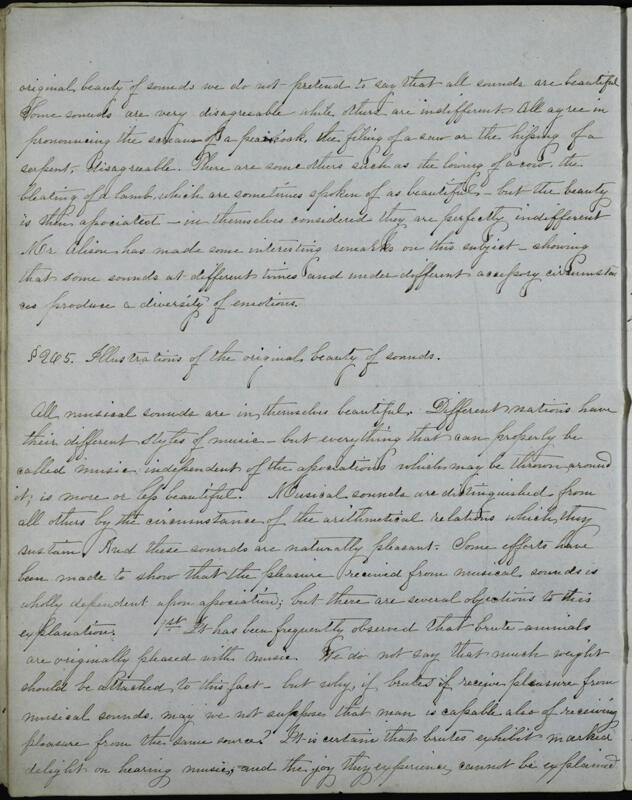 original beauty of sounds we do not pretend to say that all sounds are beautiful
Some sounds are very disagreeable while others are indifferent. All agree in
pronouncing the scream of a peacock, the filing of a saw or the hissing of a
serpent, disagreeable. There are some others such as the lowing of a cow, the
bleating of a lamb, which are sometimes spoken of as beautiful - but the beauty
is then associated - in themselves considered they are perfectly indifferent
Mr Alison has made some interesting remarks on this subject - showing
that some sounds at different times and under different accessory circumstan
ces produce a diversity of emotions.
§ 265. Illustrations of the original beauty of sounds.
All musical sounds are in themselves beautiful. Different nations have
their different styles of music - but everything that can properly be
called music independent of the associations which may be thrown around
it; is more or less beautiful. Musical sounds are distinguished from
all others by the circumstance of the arithmetical relations which they
sustain. And these sounds are naturally pleasant. Some efforts have
been made to show that the pleasure received from musical sounds is
wholly dependent upon association; but there are several objections to this
explanation. 1st It has been frequently observed that brute animals
are originally pleased with music. We do not say that much weight
should be attached to this fact - but why, if brutes receive pleasure from
musical sounds, may we not suppose that man is capable also of receiving
pleasure from the same source? It is certain that brutes exhibit marked
delight on hearing music, and the joy they experience, cannot be explained